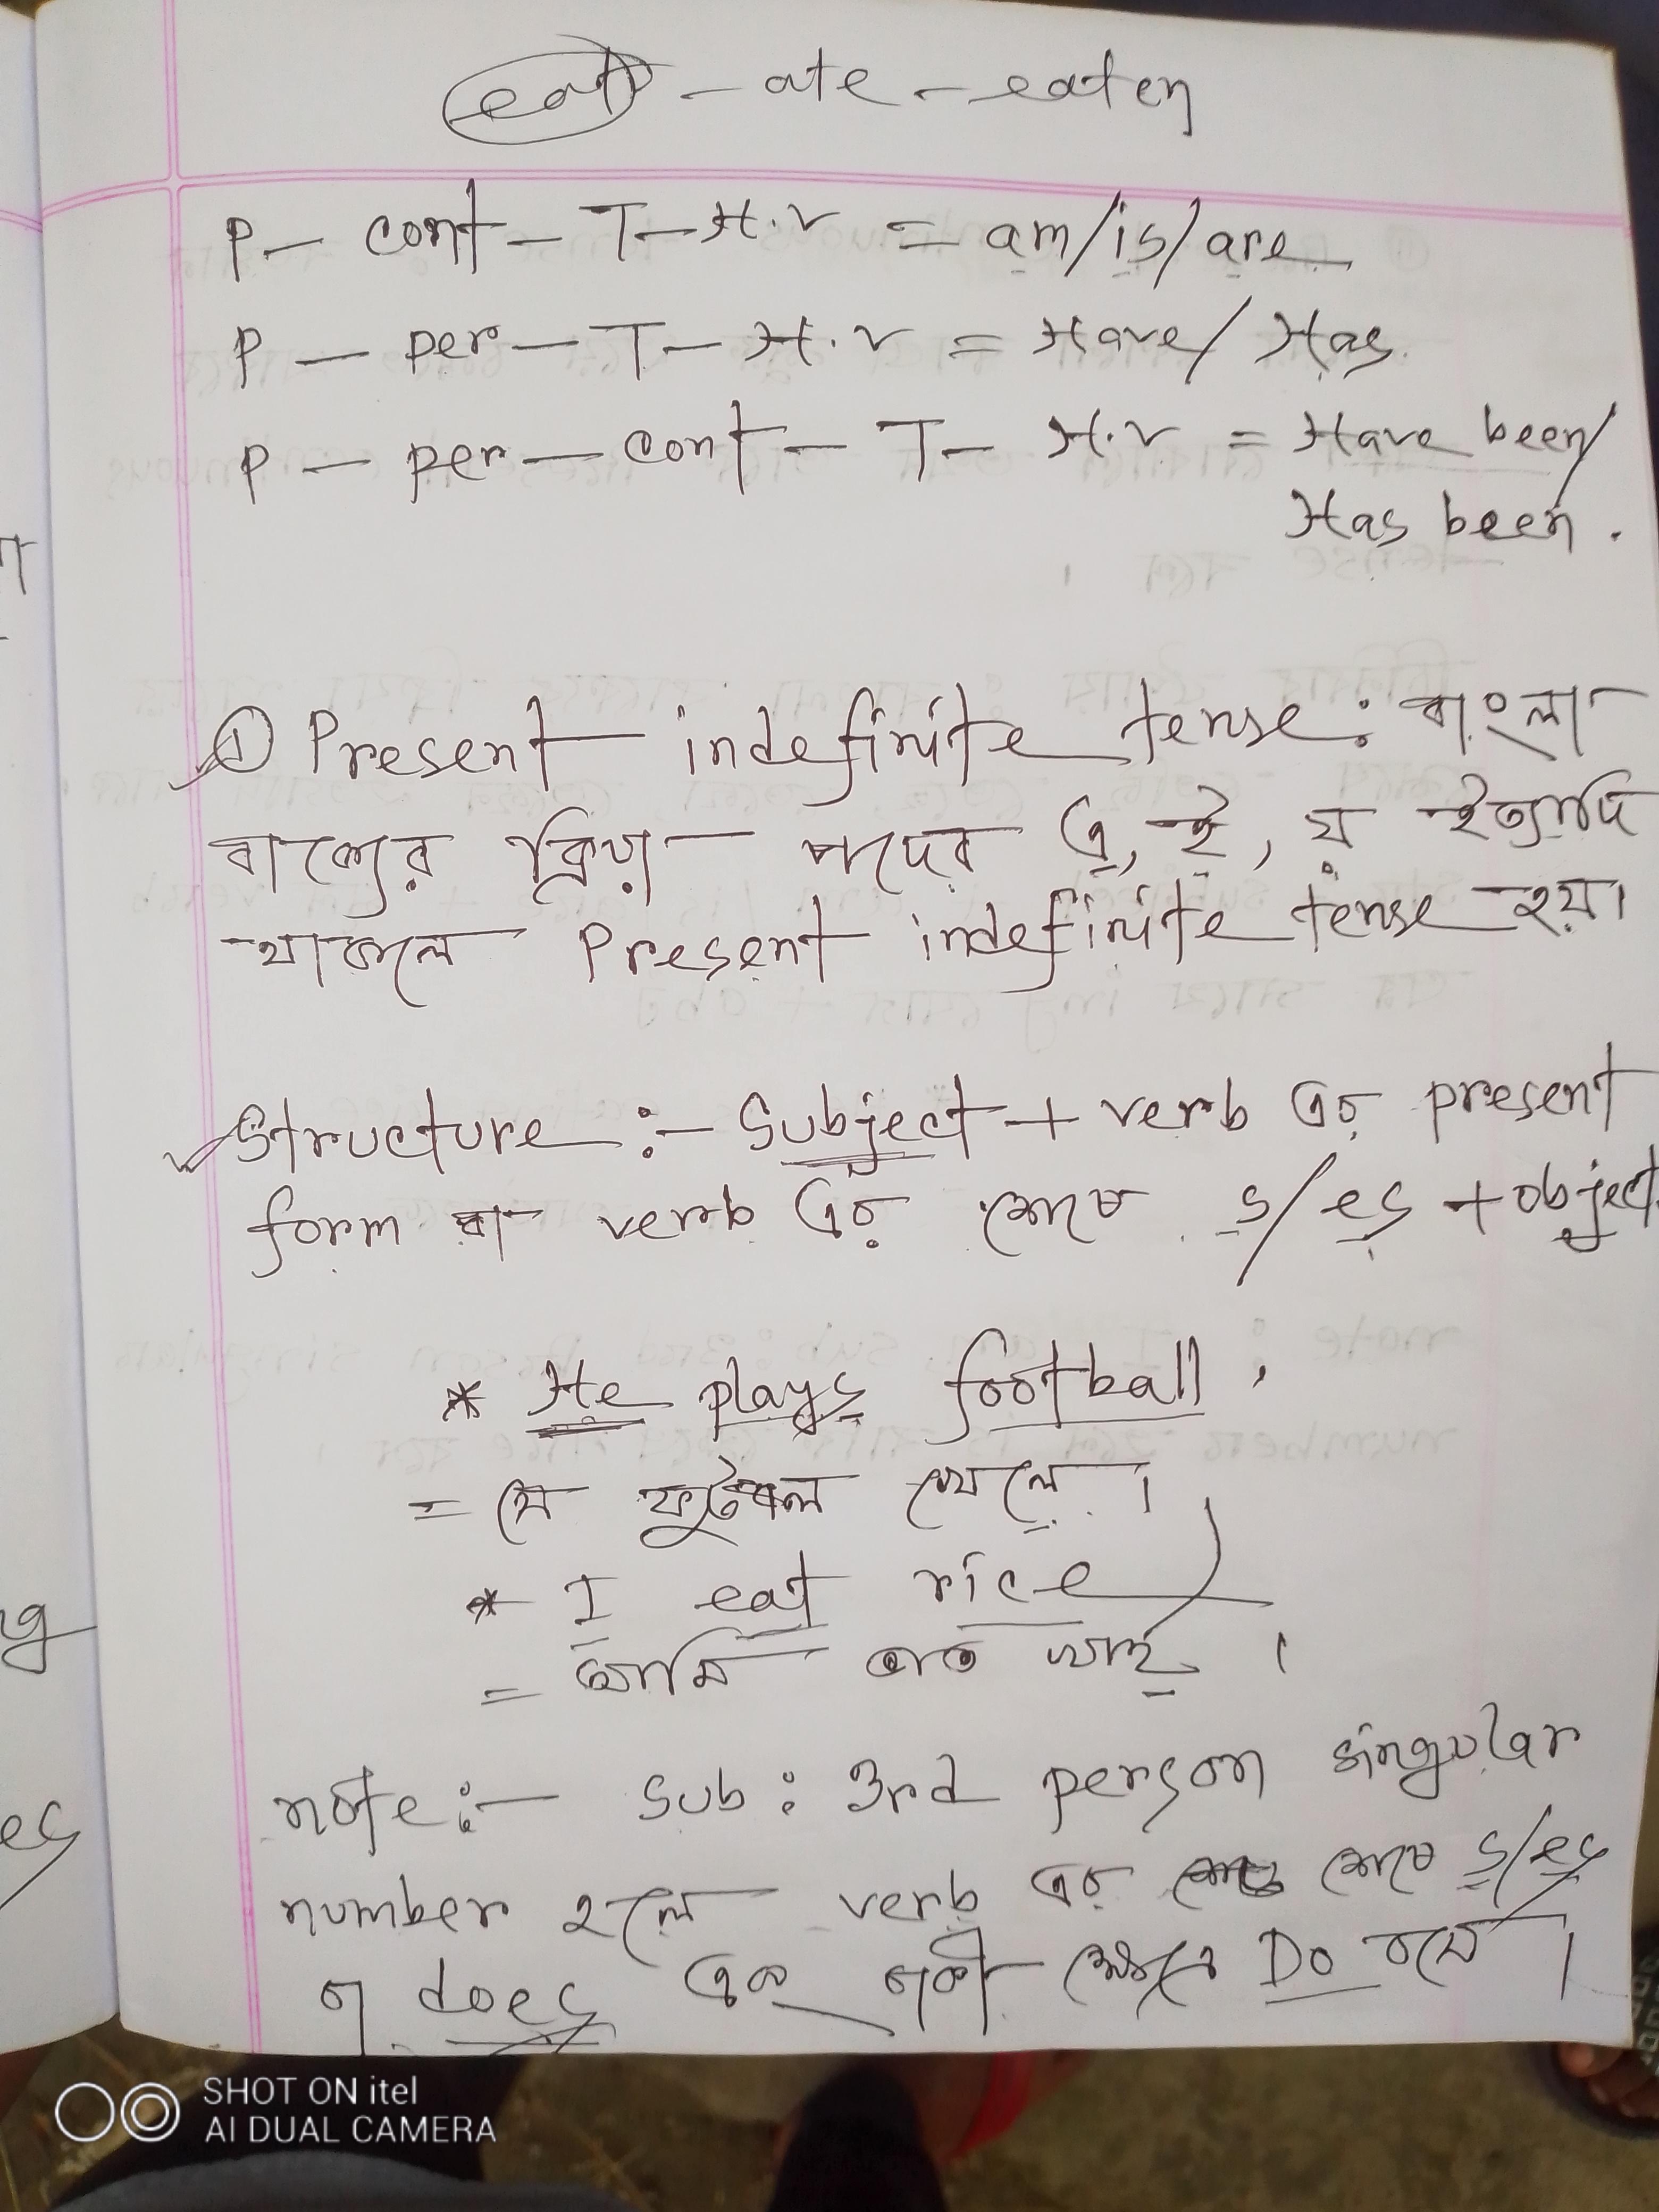 eat - ate - eaten
P - cont - T - H.V = am/is/are
P - per - T - H.V = Have/Has.
P - per - cont - T - H.V = Have been/
Has been.
① Present indefinite tense: বাংলা
বাক্যের ক্রিয়া পদের এ, ই, য় ইত্যাদি
থাকলে Present indefinite tense হয়।
Structure :- Subject + verb এর present
form বা verb এর শেষে s/es + object
* He plays football,
= সে ফুটবল খেলে।
* I eat rice
= আমি ভাত খাই।
note :- sub: 3rd person singular
number হলে verb এর শেষে s/es
does Do বসে।
SHOT ON itel
AI DUAL CAMERA